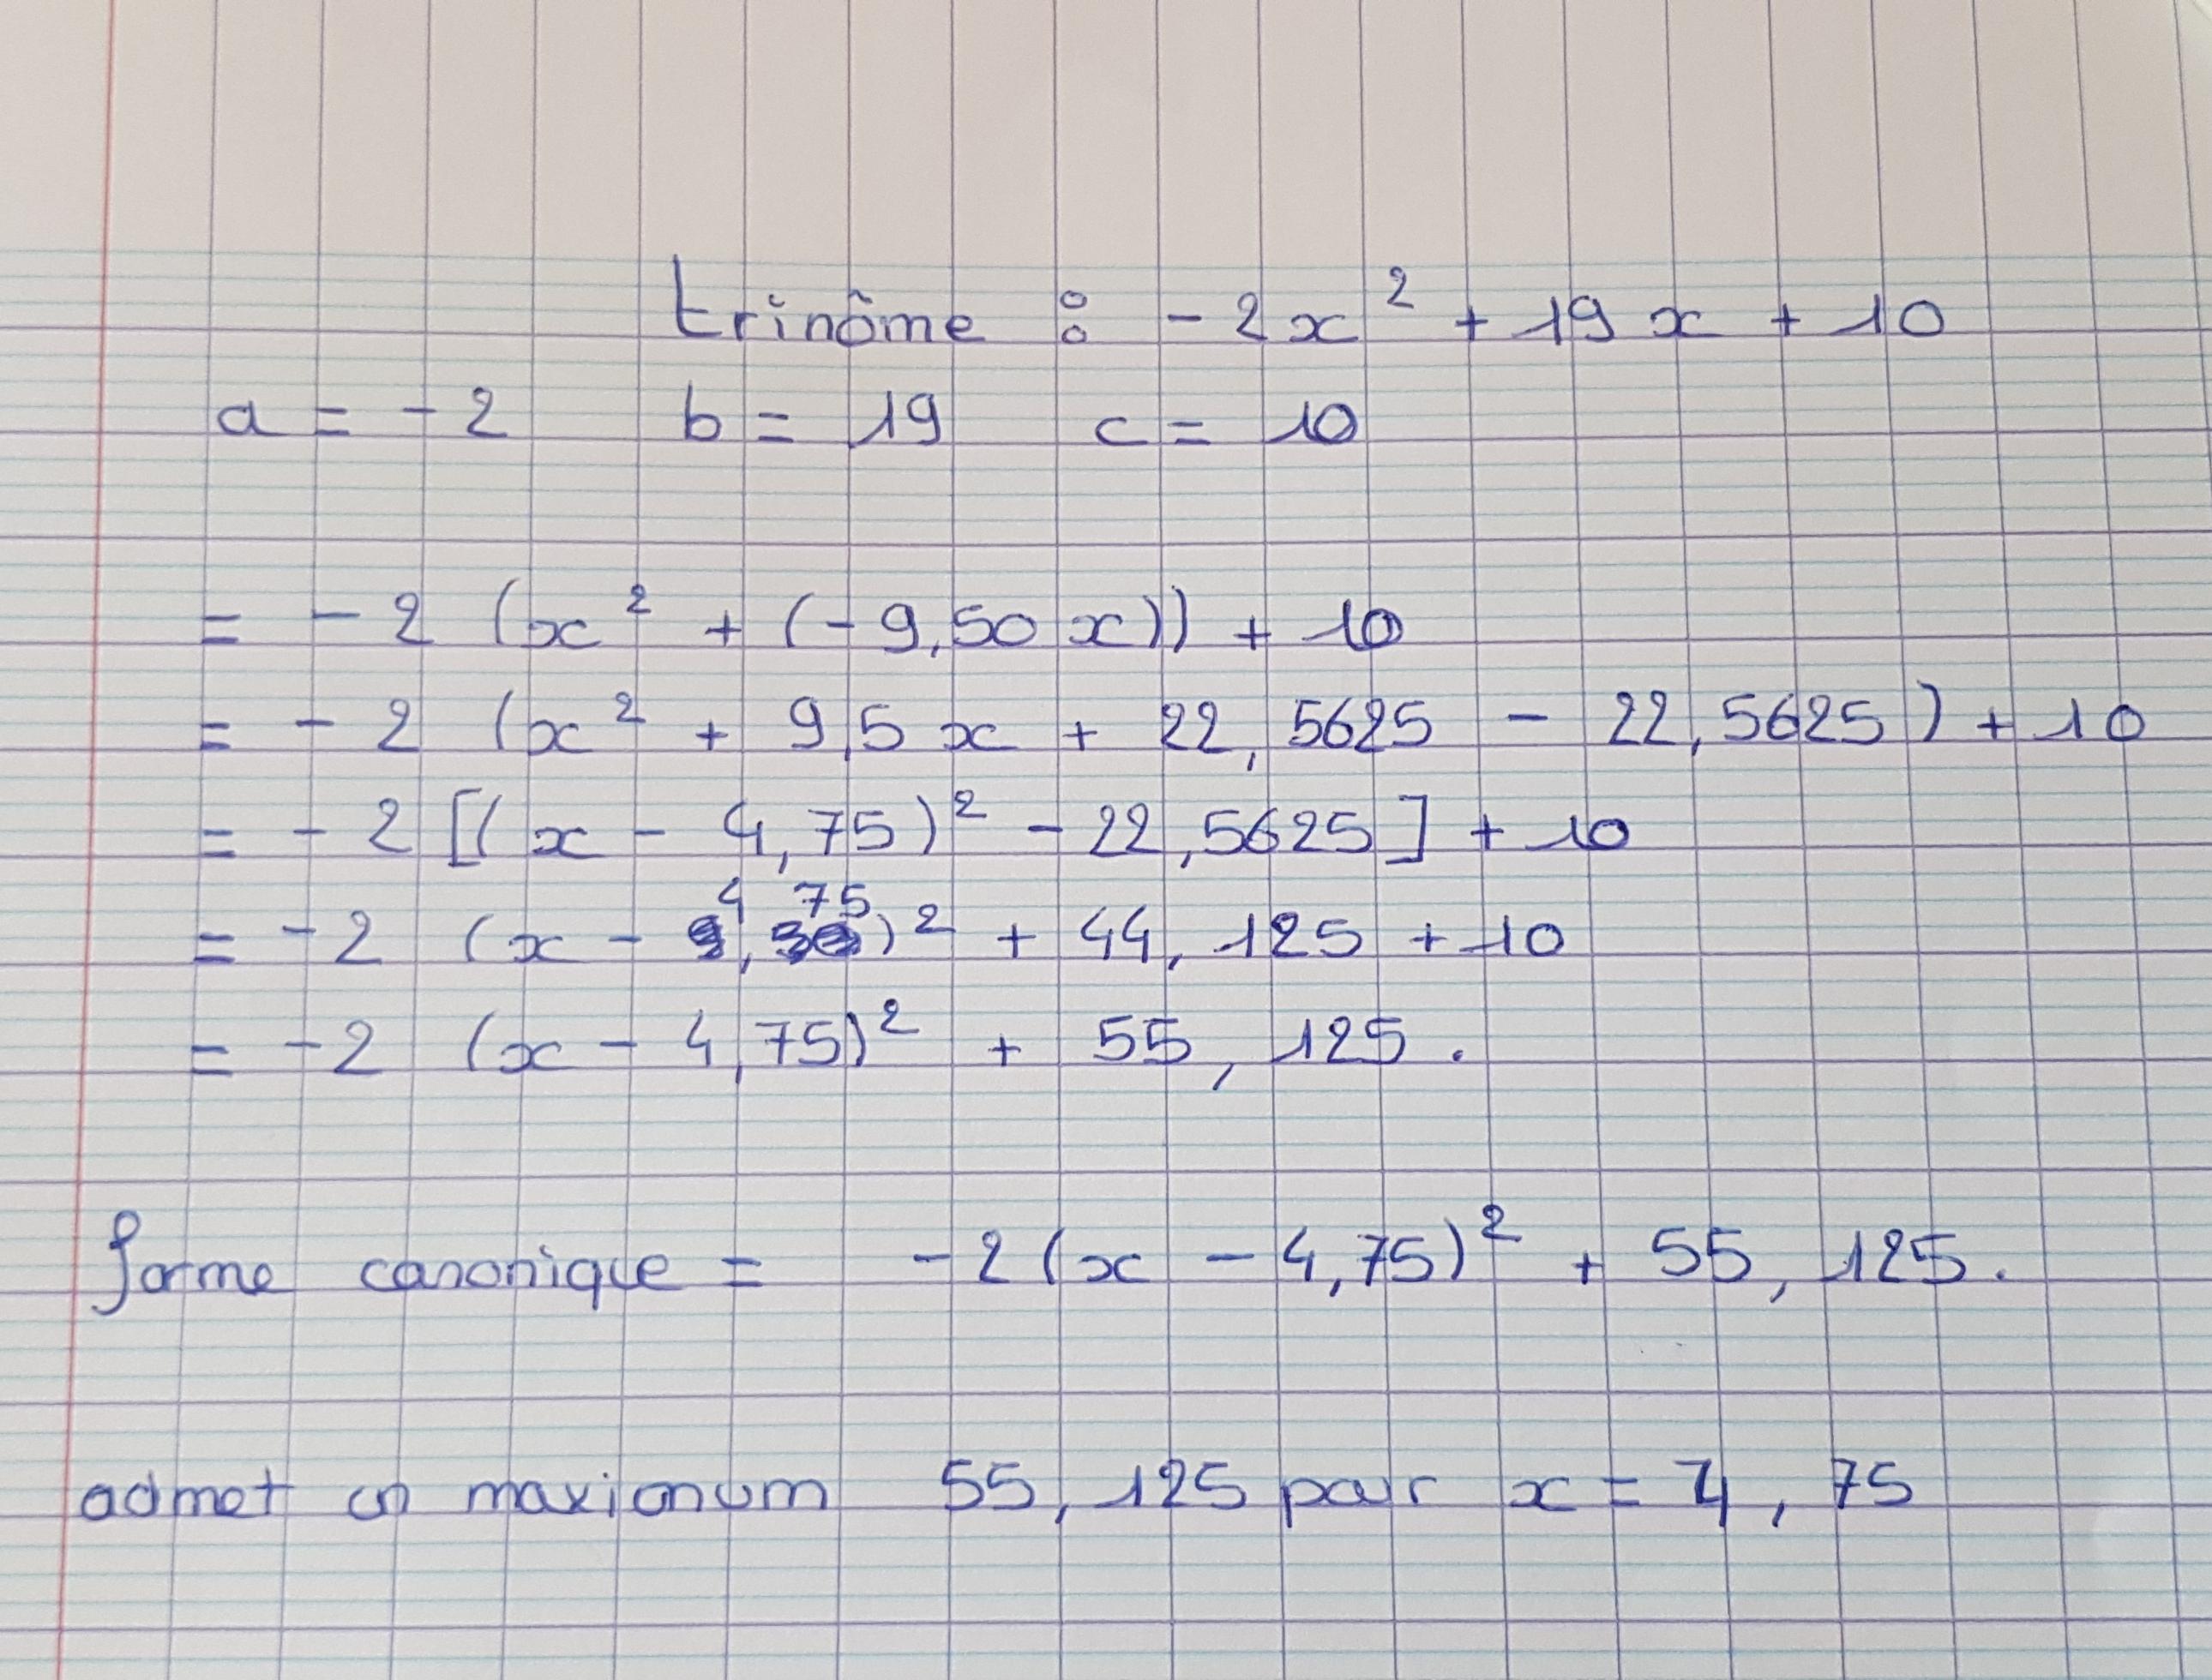 trinôme : -2x² + 19x + 10
a = -2 b = 19 c = 10
= -2 (x² + (-9,50x)) + 10
= -2 (x² + 9,5x + 22,5625 - 22,5625) + 10
= -2 [(x - 4,75)² - 22,5625] + 10
= -2 (x - 4,75)² + 44,125 + 10
= -2 (x - 4,75)² + 55,125.
forme canonique = -2(x - 4,75)² + 55,125.
admet un maximum 55,125 par x = 4,75